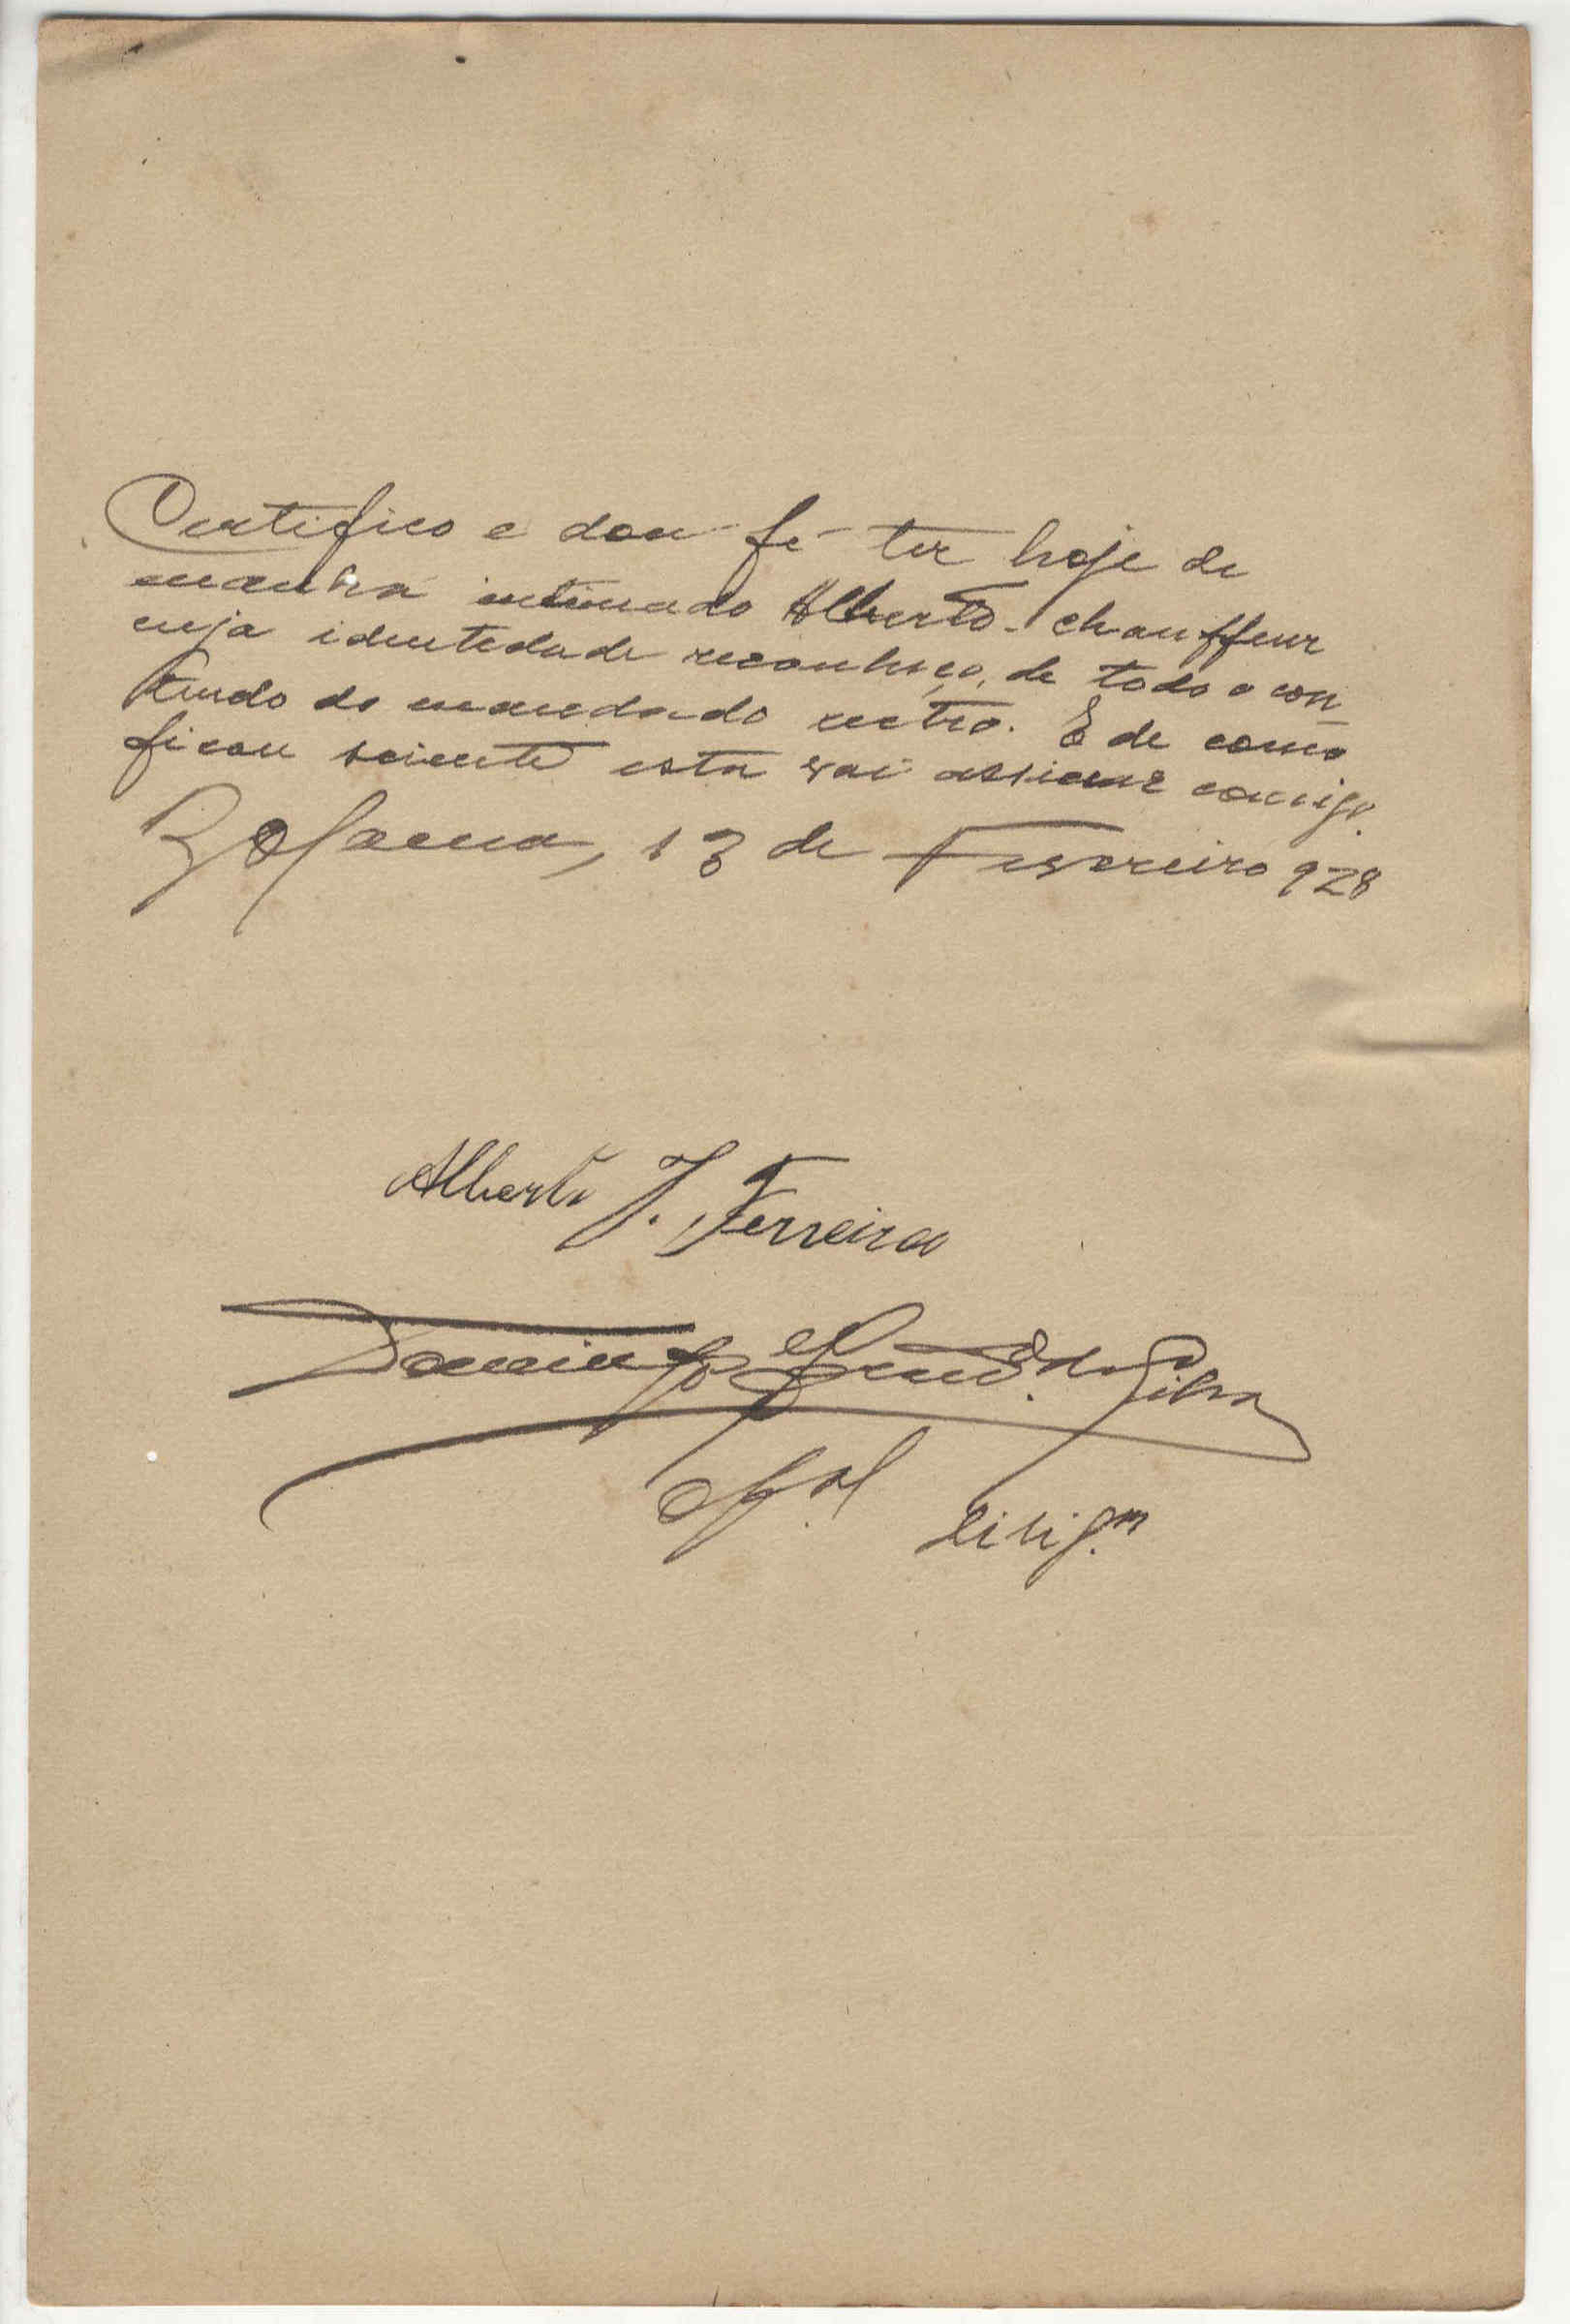 Certifico e dou fé ter hoje de
manhã intimado Alberto - chauffeur
cuja identedade reconheço, de todo o con
teudo do mandado retro. E de como
ficou sciente esta vai assinar comigo.
Bolama, 13 de Fevereiro 928
Alberto J. Ferreira
Domingos da Silva